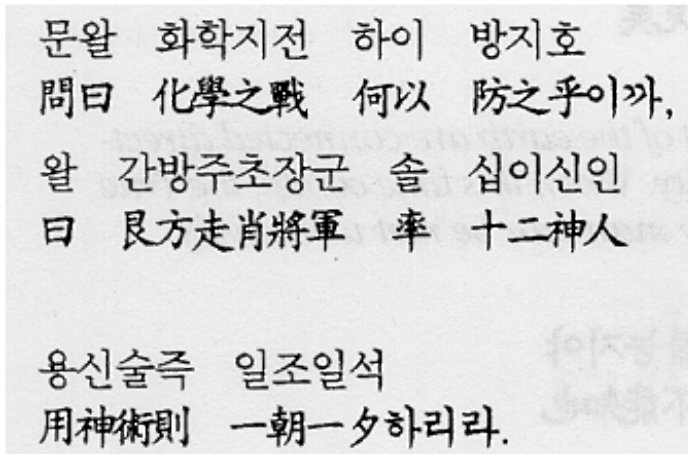 문왈 화학지전 하이 방지호
問曰 化學之戰 何以 防之乎이까,
왈 간방주초장군 솔 십이신인
曰 艮方走肖將軍 率 十二神人
용신술즉 일조일석
用神術則 一朝一夕하리라.